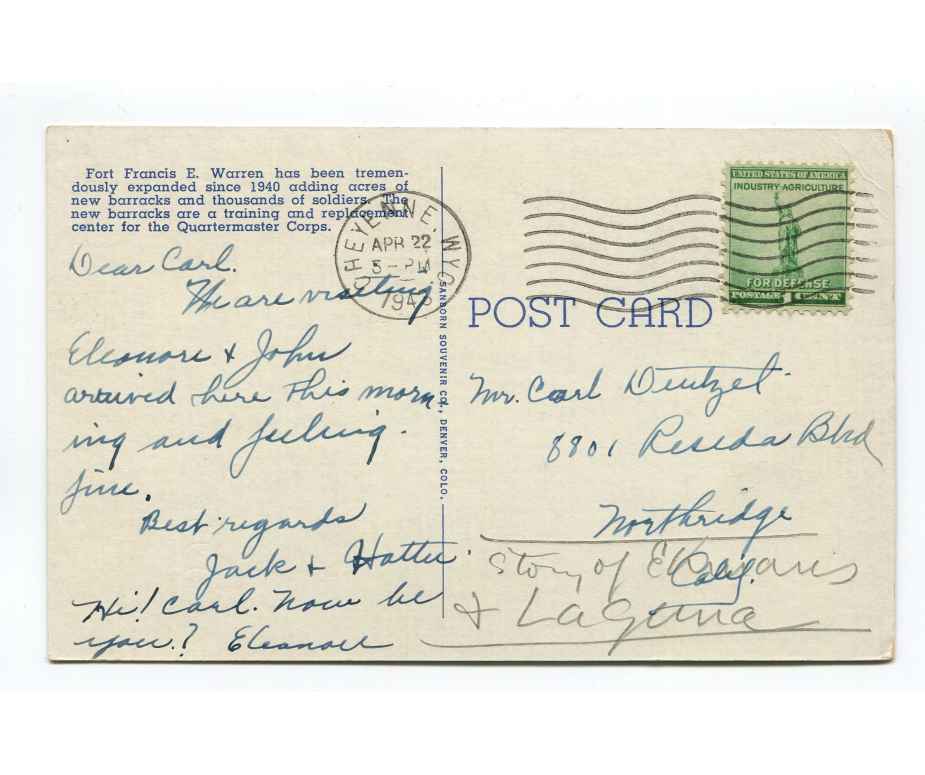 Fort Francis E. Warren has been tremen-
dously expanded since 1940 adding acres of
new barracks and thousands of soldiers. The
new barracks are a training and replacement
center for the Quartermaster Corps.
CHEYENNE, WYO
APR 22
5-PM
194
UNITED STATES OF AMERICA
INDUSTRY AGRICULTURE
FOR DEFENSE
POSTAGE 1 CENT
POST CARD
SANBORN SOUVENIR CO., DENVER, COLO.
Dear Carl.
We are visiting
Eleonore & John
arrived here this morn
ing and feeling.
fine.
Best regards
Jack & Hattie.
Hi! Carl. How be
you? Eleanore
Mr. Carl Deutzel.
8801 Reseda Blvd
Northridge
Calif.
Story of
& Laguna